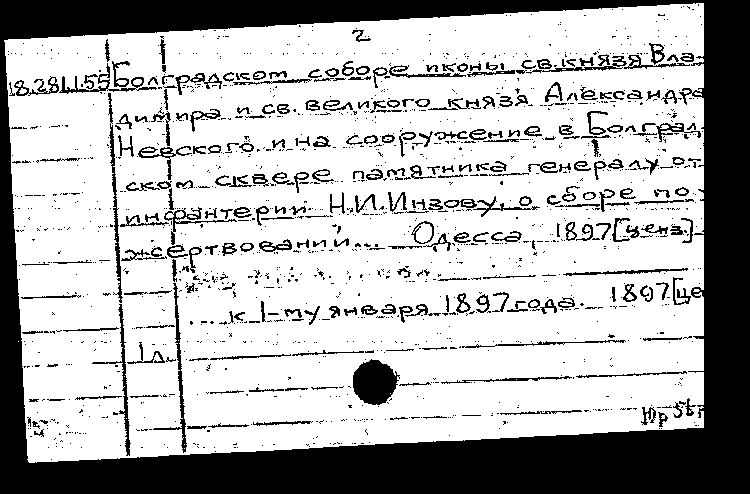 2
18.281.1.55 Болградском соборе иконы св. князя Вла-
димира и св. великого князя Александра
Невского и на сооружение в Болград-
ском сквере памятника генералу от
инфантерии Н.И.Инзову, о сборе по-
жертвований... Одесса, 1897 [ценз.]
... к 1-му января 1897 года. 1897 [це
1 л.
Юр 56